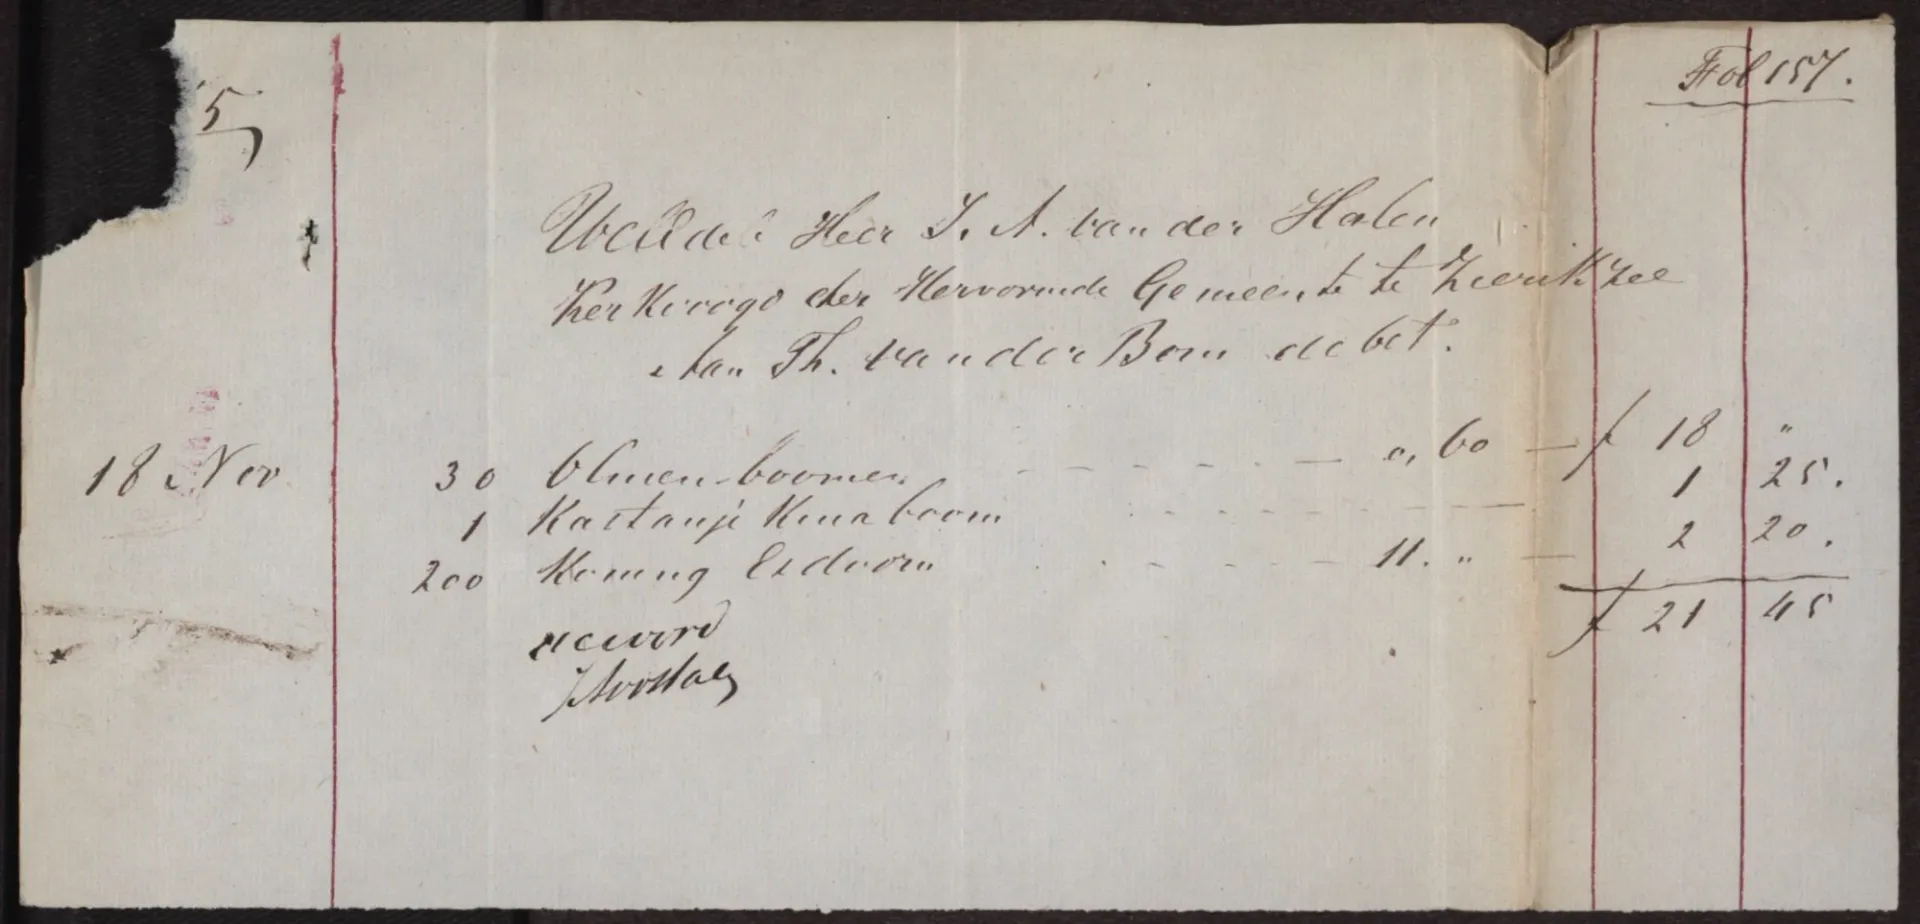 Fol 157.
5
WelEdele Heer J. A. van der Halen
Kerkvoogd der Hervormde Gemeente te Zierikzee
Aan Th. van der Bom debet.
18 Nov 30 Olmen boomen 0,60 f 18 "
1 Kastanje boom 1 25.
200 Koning Esdoorn 11. " 2 20.
f 21 45
accoord